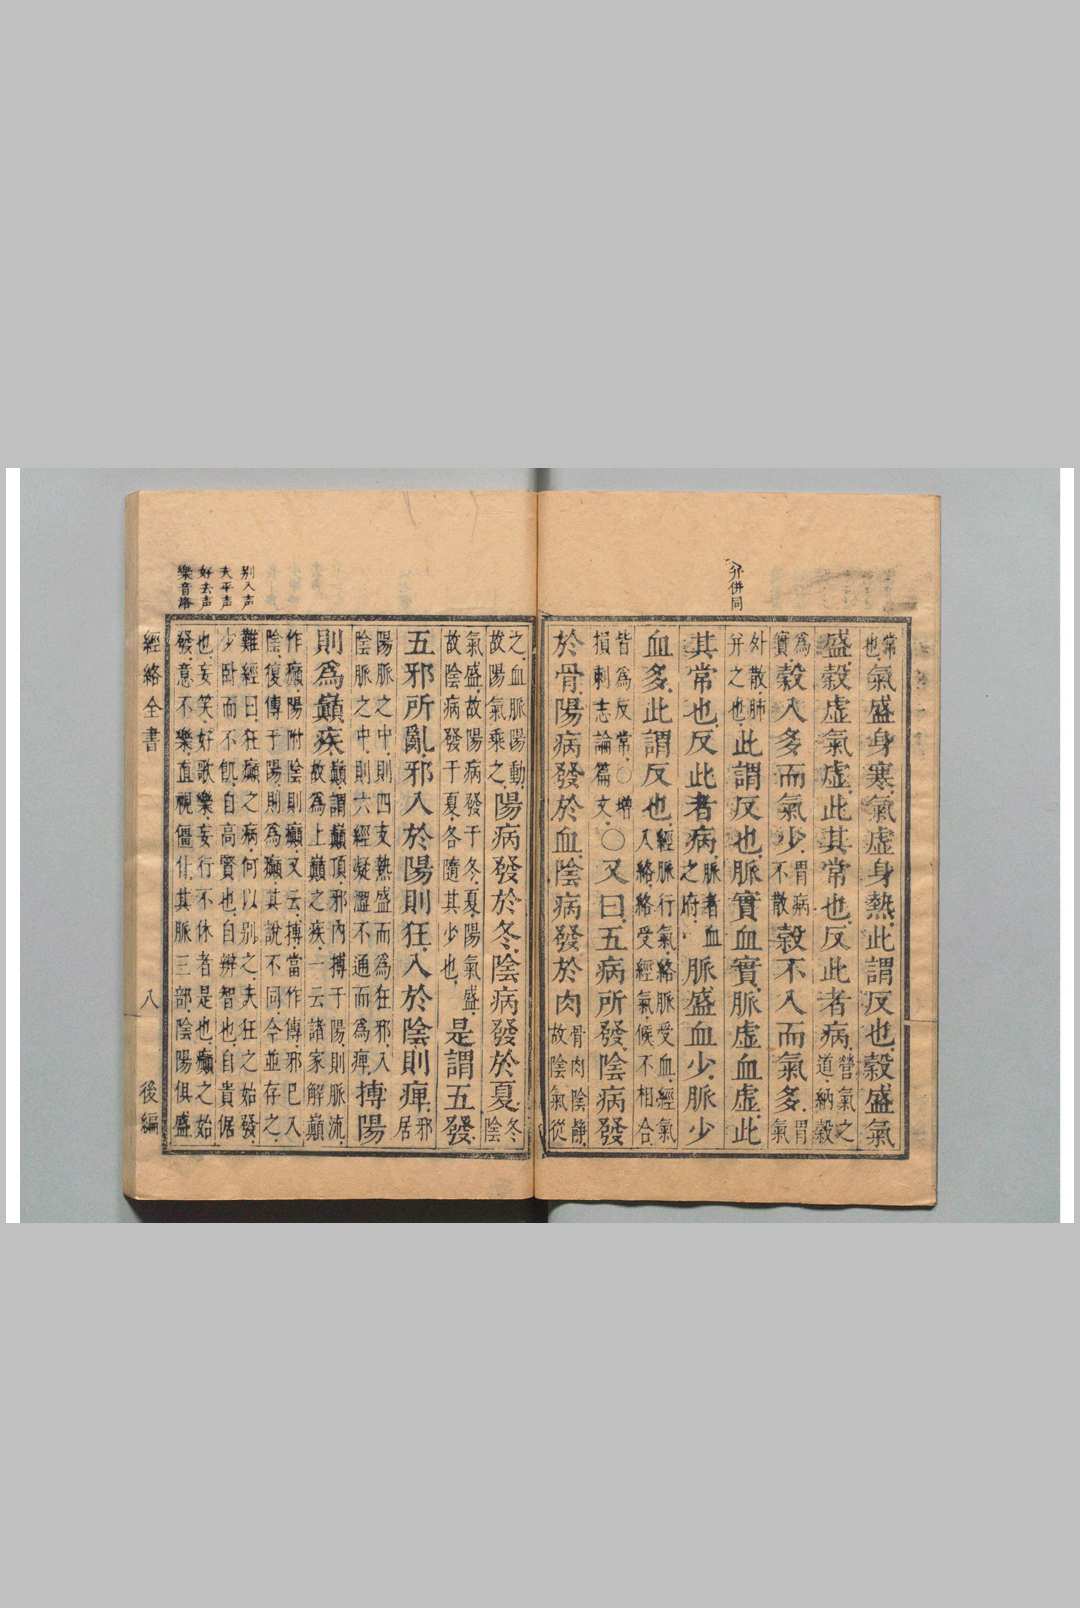 并併同
常也氣盛身寒氣虛身熱此謂反也穀盛氣
盛穀虛氣虛此其常也反此者病營氣之道納穀
為寶穀入多而氣少胃病不散穀不入而氣多胃氣
外散肺并之也此謂反也脈實血實脈虛血虛此
其常也反此者病脈者血之府脈盛血少脈少
血多此謂反也經脈行氣絡脈受血經氣入絡絡受經氣候不相合
皆為反常〇增損刺志論篇文〇又曰五病所發陰病發
於骨陽病發於血陰病發於肉骨肉陰靜故陰氣從
之血脈陽動故陽氣乘之陽病發於冬陰病發於夏冬陰
氣盛故陽病發于冬夏陽氣盛故陰病發于夏各隨其少也是謂五發
五邪所亂邪入於陽則狂入於陰則痺邪居
陽脈之中則四支熱盛而為狂邪入陰脈之中則六經凝澀不通而為痺搏陽
則為巔疾巔謂巔頂邪內搏于陽則脈流故為上巔之疾一云諸家解巔
作癲陽附陰則癲又云搏當作傳邪已入陰復傳于陽則為癲其說不同今並存之
難經曰狂癲之病何以别之夫狂之始發少卧而不飢自高賢也自辨智也自貴倨
也妄笑好歌樂妄行不休者是也癲之始發意不樂直視僵仆其脈三部陰陽俱盛
别入声
夫平声
好去声
樂音洛
經絡全書 八 後編